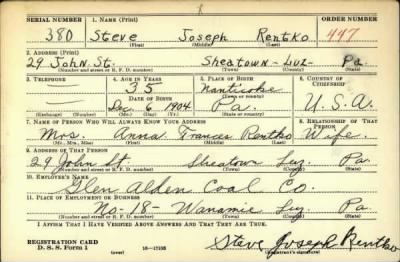 SERIAL NUMBER 1. NAME (Print) ORDER NUMBER
380 Steve Joseph Rentko 447
(First) (Middle) (Last)
2. ADDRESS (Print)
29 John. St. Sheatown - Luz- Pa.
(Number and street or R. F. D. number) (Town) (County) (State)
3. TELEPHONE 4. AGE IN YEARS 5. PLACE OF BIRTH 6. COUNTRY OF CITIZENSHIP
35 Nanticoke
DATE OF BIRTH (Town or county)
Dec. 6 1904 Pa. U.S.A.
(Exchange) (Number) (Mo.) (Day) (Yr.) (State or country)
7. NAME OF PERSON WHO WILL ALWAYS KNOW YOUR ADDRESS 8. RELATIONSHIP OF THAT PERSON
Mrs. Anna Frances Rentko Wife.
(Mr., Mrs., Miss) (First) (Middle) (Last)
9. ADDRESS OF THAT PERSON
29 John St. Sheatown Luz. Pa.
(Number and street or R. F. D. number) (Town) (County) (State)
10. EMPLOYER'S NAME
Glen Alden Coal Co.
11. PLACE OF EMPLOYMENT OR BUSINESS
No-18- Wanamie Luz Pa.
(Number and street or R. F. D. number) (Town) (County) (State)
I AFFIRM THAT I HAVE VERIFIED ABOVE ANSWERS AND THAT THEY ARE TRUE.
REGISTRATION CARD
D. S. S. Form 1 (over) 16-17105 Steve Joseph Rentko
(Registrant's signature)